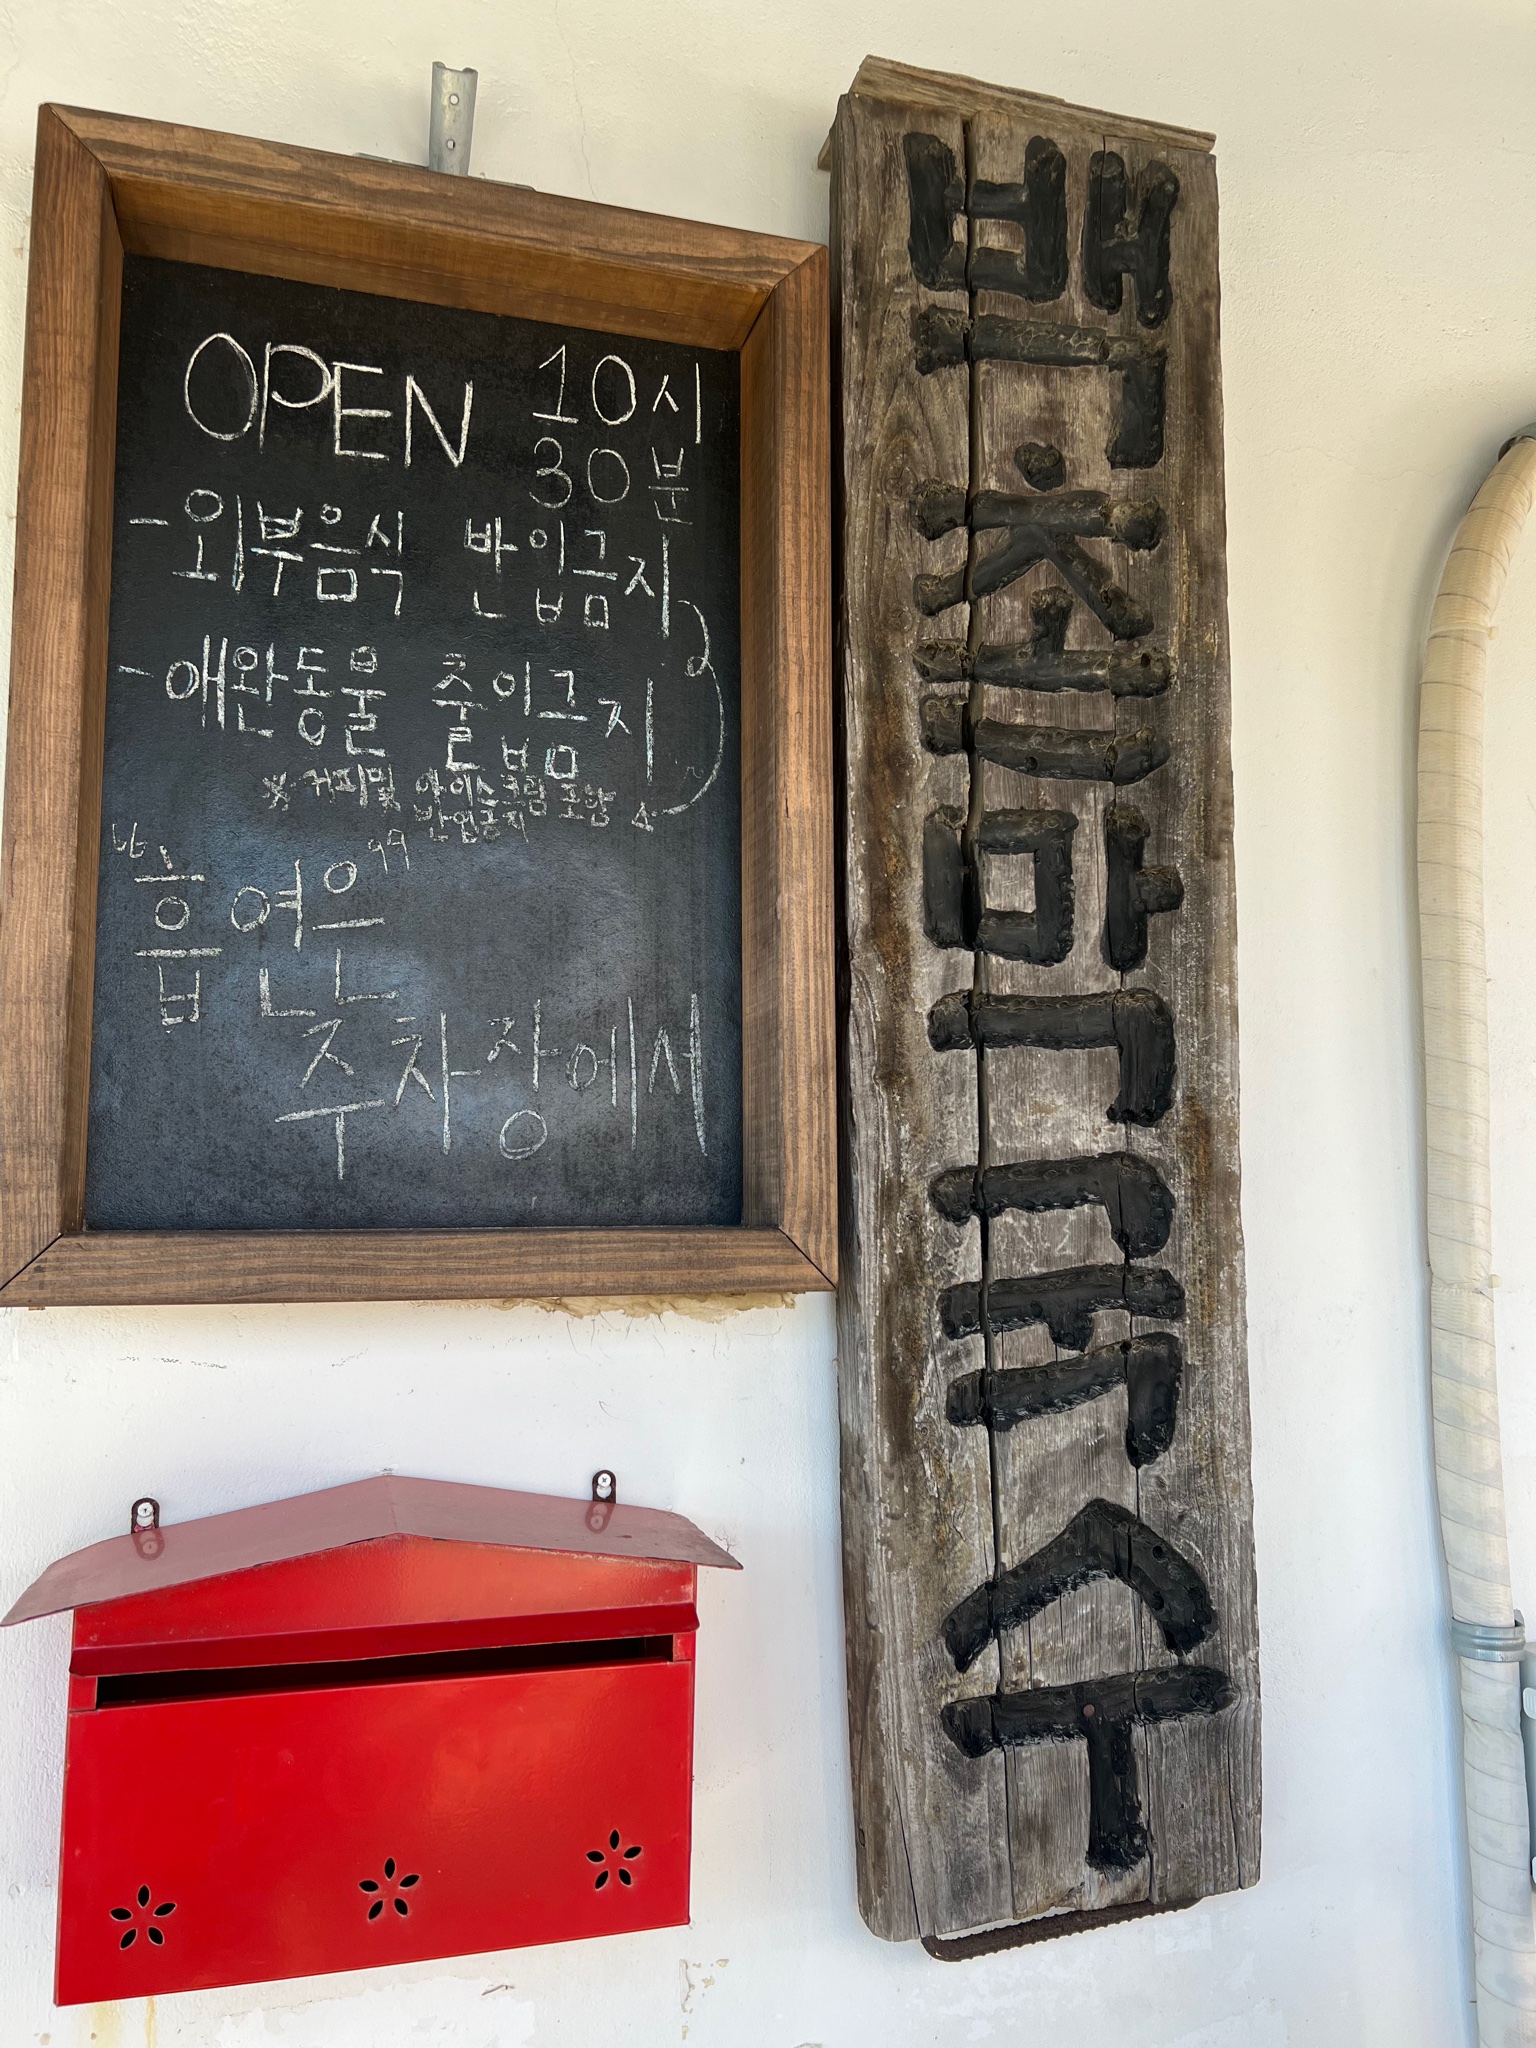 OPEN 10시
30분
- 외부음식 반입금지
- 애완동물 출입금지
※ 커피및 아이스크림 포함
반입금지
"흡연은"
주차장에서
백촌막국수